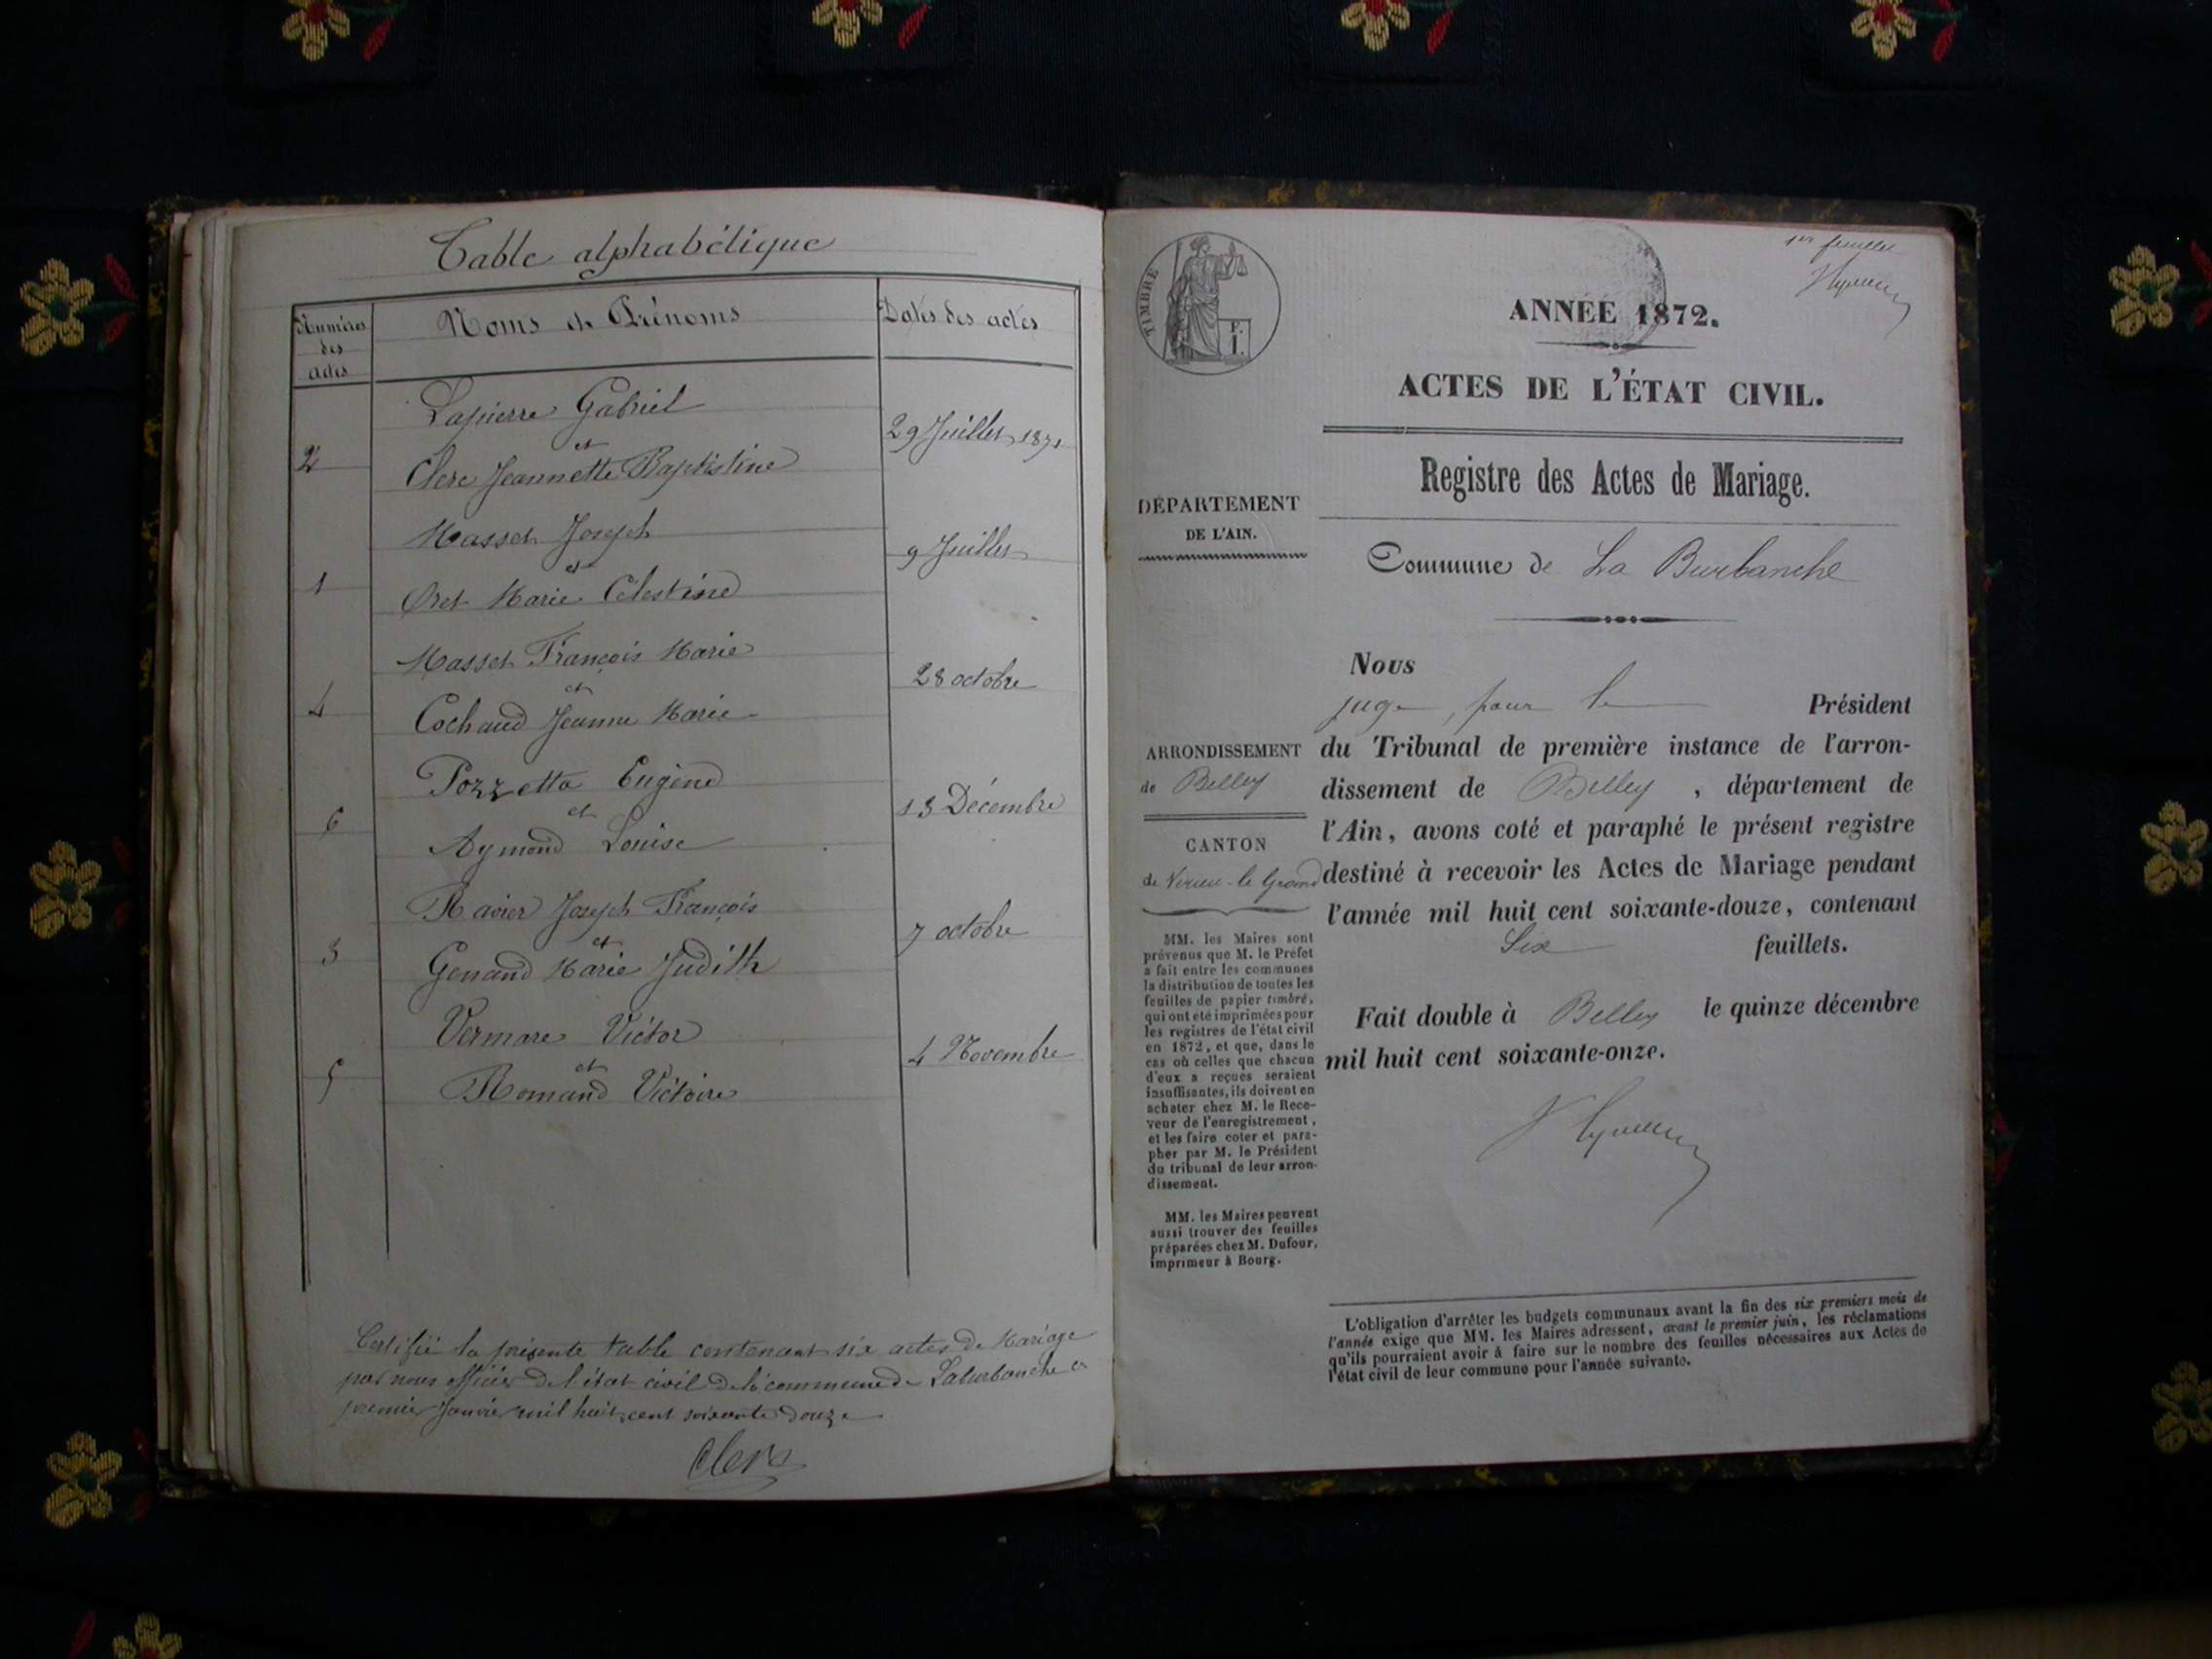 Table alphabétique
Numéros des actes
Noms et Prénoms
Dates des actes
Lapierre Gabriel
et
2
29 Juillet 1871
Clerc Jeannette Baptistine
Masset Joseph
et
1
9 Juillet
Oret Marie Célestine
Masset François Marie
et
4
28 octobre
Cochaud Jeanne Marie
Pozzetta Eugène
et
6
13 Décembre
Aymond Louise
Ravier Joseph François
et
3
7 octobre
Genand Marie Judith
Vermare Victor
et
5
4 Novembre
Romand Victoire
Certifié la présente table contenant six actes de Mariage
par nous officier de l'état civil de la commune de Laburbanche le
premier Janvier mil huit cent soixante douze
Clerc
TIMBRE
F.
I.
1er feuillet
ANNÉE 1872.
ACTES DE L'ÉTAT CIVIL.
Registre des Actes de Mariage.
DÉPARTEMENT
DE L'AIN.
Commune de La Burbanche
ARRONDISSEMENT
de Belley
CANTON
de Virieu-le Grand
MM. les Maires sont
prévenus que M. le Préfet
a fait entre les communes
la distribution de toutes les
feuilles de papier timbré,
qui ont été imprimées pour
les registres de l'état civil
en 1872, et que, dans le
cas où celles que chacun
d'eux a reçues seraient
insuffisantes, ils doivent en
acheter chez M. le Rece-
veur de l'enregistrement,
et les faire coter et para-
pher par M. le Président
du tribunal de leur arron-
dissement.
MM. les Maires peuvent
aussi trouver des feuilles
préparées chez M. Dufour,
imprimeur à Bourg.
Nous
juge, pour le Président
du Tribunal de première instance de l'arron-
dissement de Belley, département de
l'Ain, avons coté et paraphé le présent registre
destiné à recevoir les Actes de Mariage pendant
l'année mil huit cent soixante-douze, contenant
Six feuillets.
Fait double à Belley le quinze décembre
mil huit cent soixante-onze.
L'obligation d'arrêter les budgets communaux avant la fin des six premiers mois de
l'année exige que MM. les Maires adressent, avant le premier juin, les réclamations
qu'ils pourraient avoir à faire sur le nombre des feuilles nécessaires aux Actes de
l'état civil de leur commune pour l'année suivante.